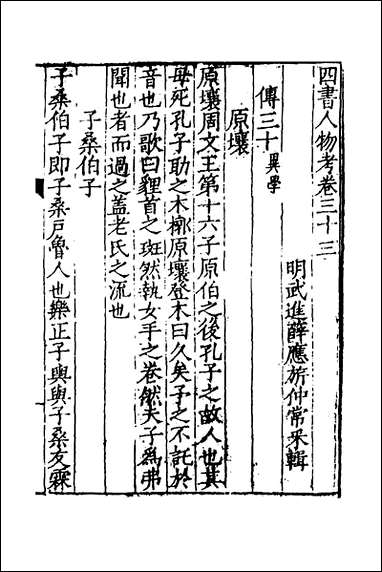 四書人物考卷三十三
明武進薛應旂仲常采輯
傳三十異學
原壤
原壤周文王第十六子原伯之後孔子之故人也其
母死孔子助之木槨原壤登木曰久矣予之不託於
音也乃歌曰貍首之斑然執女手之卷然夫子為弗
聞也者而過之蓋老氏之流也
子桑伯子
子桑伯子即子桑戶魯人也樂正子輿與子桑友霖